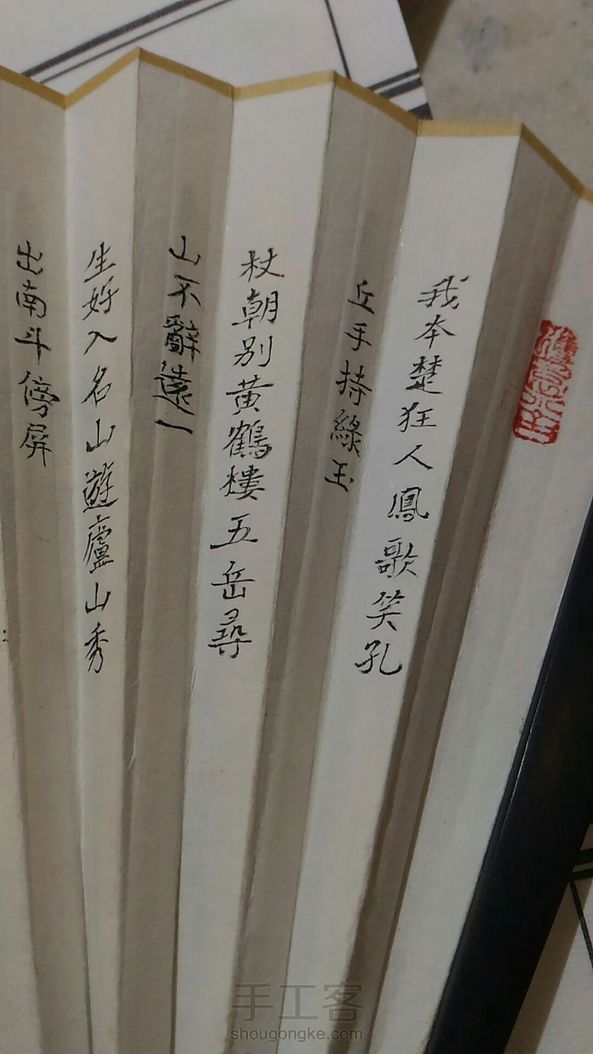 我本楚狂人鳳歌笑孔
丘手持綠玉
杖朝別黃鶴樓五岳尋
山不辭遠一
生好入名山遊廬山秀
出南斗傍屏
手工客
shougongke.com